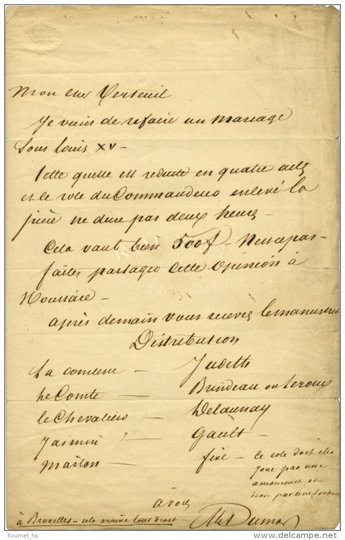 Mon cher Verteuil
Je viens de refaire un Mariage
Sous Louis XV –
telle quelle est reduite en quatre actes
et le role du Commandeur enlevé la
pièce ne dure pas deux heures –
Cela vaut bien 500f – N'est ce pas –
faites partager cette opinion à
Houssaie –
après demain vous recevrez le manuscrit
Distribution
La comtesse – Judith
Le Comte – Brindeau ou Leroux
le Chevalier – Delaunay
Jasmin – Gault
Marton – fixe – le role doit etre
joué par une
amoureuse et
non par une
à vous
à Bruxelles – cela arrive tous droit
Alex Dumas
www.delcampe.net
Numero1_hp